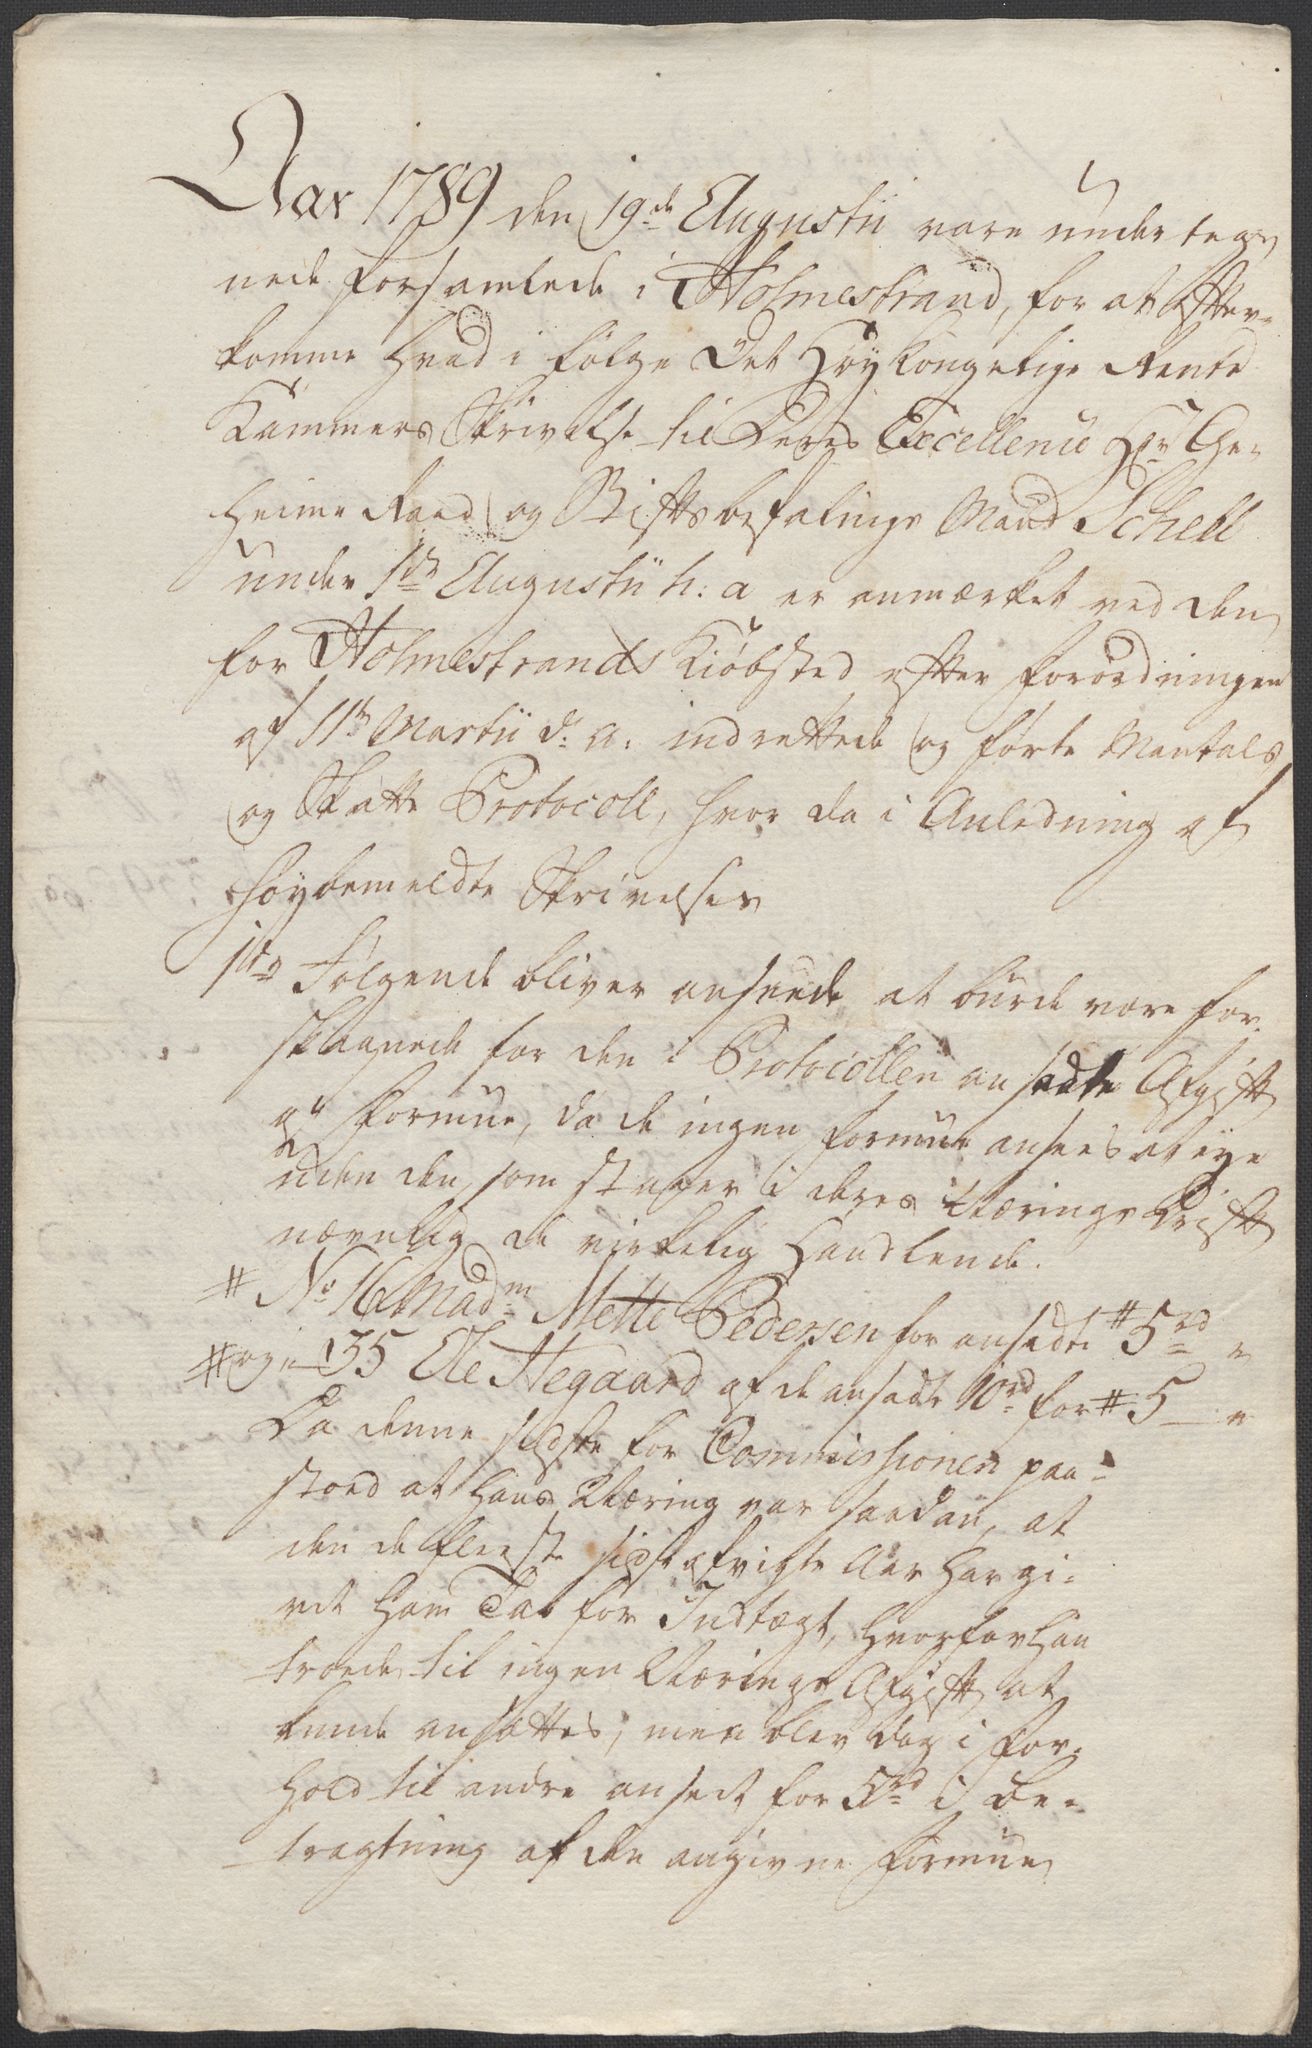 Aar 1789 den 19de Augustii vare underteg
nede forsamlede i Holmestrand, for at efter-
komme hvad i følge Det Høykongelige Rente
Kammers Skrivelse til Deres Excellence Hr Ge-
heime Raad og Stiftsbefalings Mand Schell
under 1te Augustii h: a er anmærket ved den
for Holmestrands Kiøbsted efter Forordningen
af 11te Martii d: a: indrettede og førte Mantals
og Skatte Protocoll, hvor da i Anledning af
høybemeldte Skrivelse
1te Følgende bliver anseede at burde være for-
skaanede for den i Protocollen ansadte Afgift
af Formue, da de ingen Formue ansees at eye
uden den, som staaer i deres Nærings Drift
nævnlig de virkelig Handlende.
# No 16 Madm Mette Pedersen for ansadte # 5 rd "
# og " 135 Ole Hegaard af de ansadte 10 rd for # 5 — "
Da denne sidste for Commissionen paa-
stoed at hans Næring var saadan, at
den de fleeste sidstafvigte Aar har gi-
vet ham Tab for Indtægt, hvorfor han
troede til ingen Nærings Afgift at
kunde ansættes, men blev dog i For-
hold til andre anseet for 5 rd i Be-
tragtning af den angivne Formue